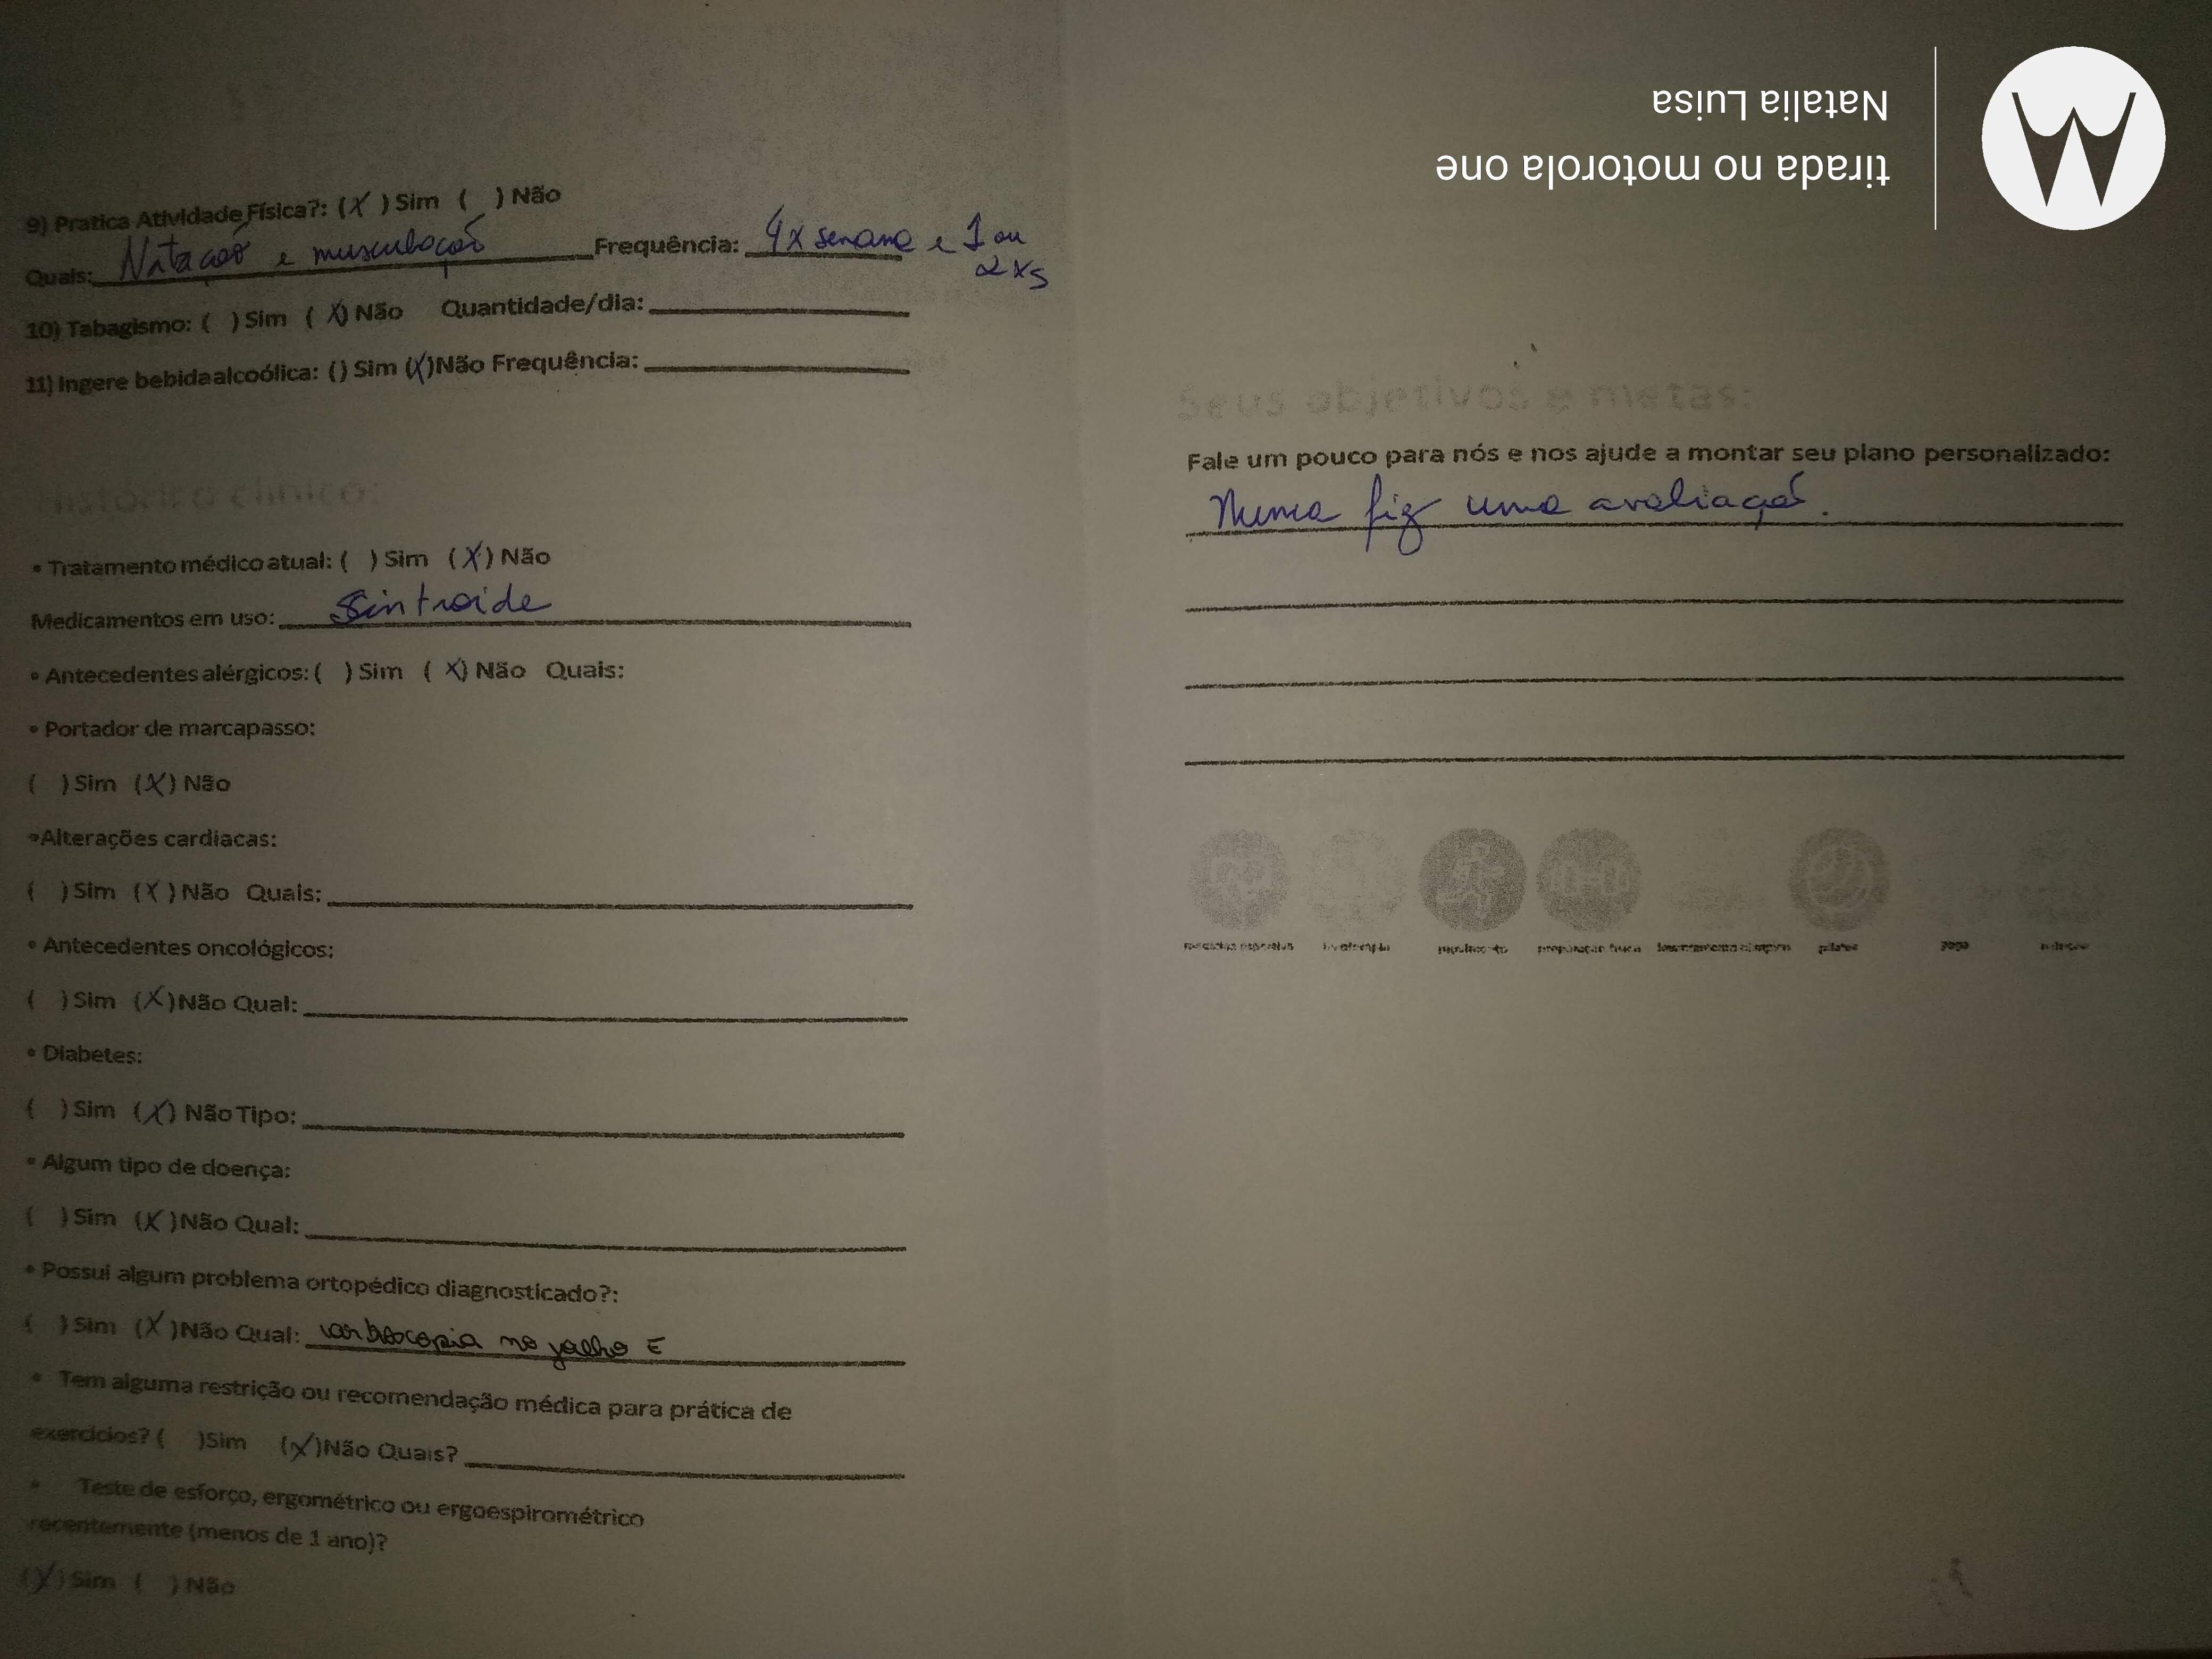 9) Pratica Atividade Física?: (X) Sim ( ) Não
Quais: Natação e musculação Frequência: 4x semana e 1 ou
2xs
10) Tabagismo: ( ) Sim (X) Não Quantidade/dia:
11) Ingere bebida alcoólica: () Sim (X)Não Frequência:
Histórico clínico:
• Tratamento médico atual: ( ) Sim (X) Não
Medicamentos em uso: Sintroide
• Antecedentes alérgicos: ( ) Sim (X) Não Quais:
• Portador de marcapasso:
( ) Sim (X) Não
• Alterações cardíacas:
( ) Sim (X) Não Quais:
• Antecedentes oncológicos:
( ) Sim (X)Não Qual:
• Diabetes:
( ) Sim (X) Não Tipo:
• Algum tipo de doença:
( ) Sim (X)Não Qual:
• Possui algum problema ortopédico diagnosticado?:
( ) Sim (X)Não Qual: no joelho E
• Tem alguma restrição ou recomendação médica para prática de
exercícios? ( )Sim (X)Não Quais?
• Teste de esforço, ergométrico ou ergoespirométrico
recentemente (menos de 1 ano)?
(X) Sim ( ) Não
Seus objetivos e metas:
Fale um pouco para nós e nos ajude a montar seu plano personalizado:
Nunca fiz uma avaliação.
preparação física
pilates
yoga
tirada no motorola one
Natalia Luisa